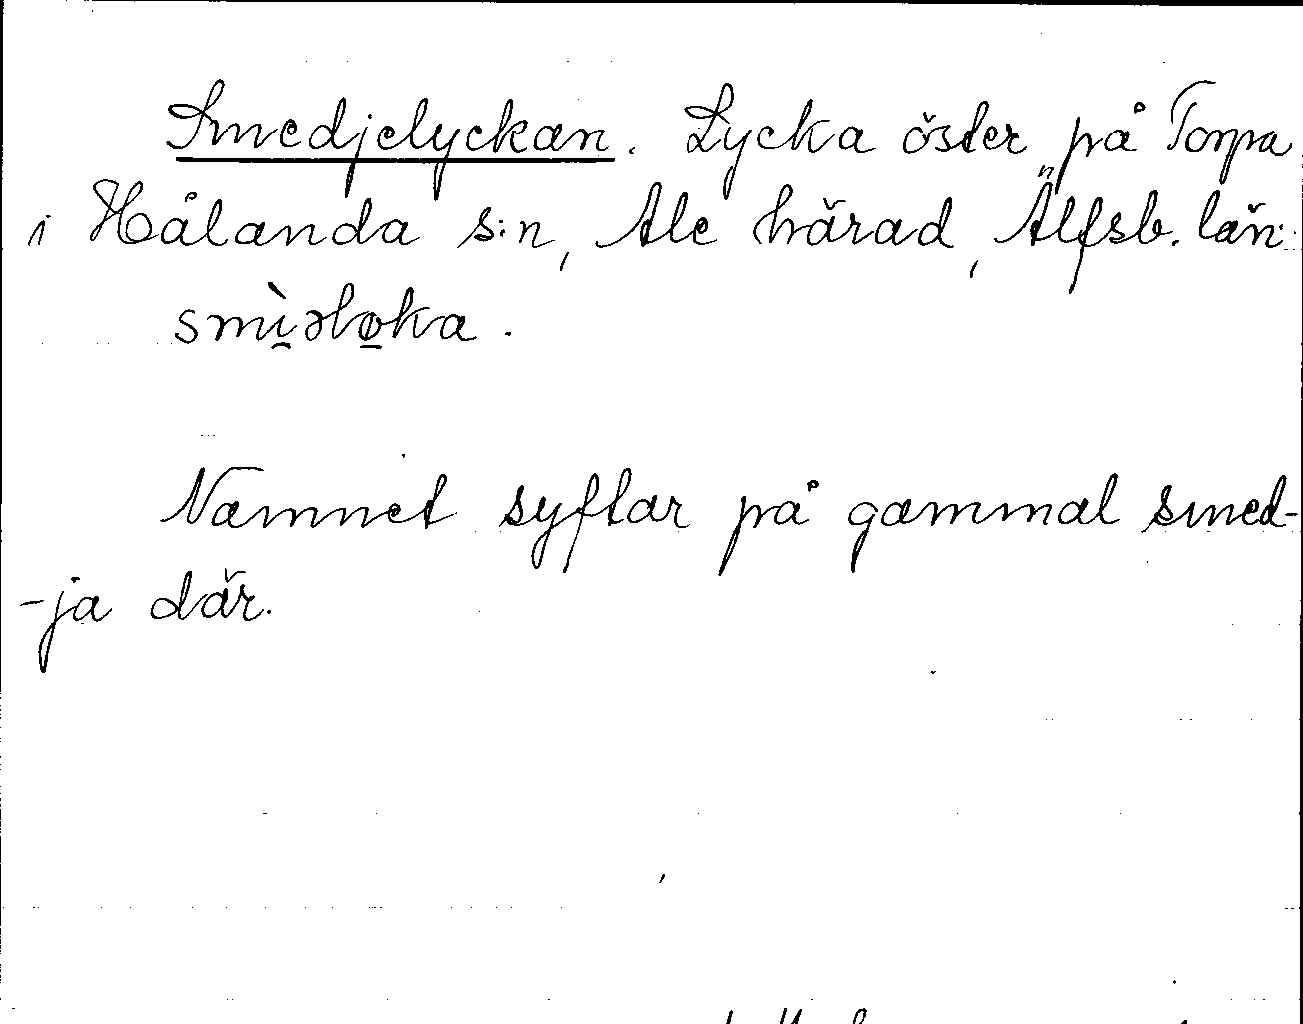 Smedjelyckan. Lycka öster på Torpa
i Hålanda s:n, Ale härad, Älfsb. län.
smìəløka.
Namnet syftar på gammal smed-
-ja där.